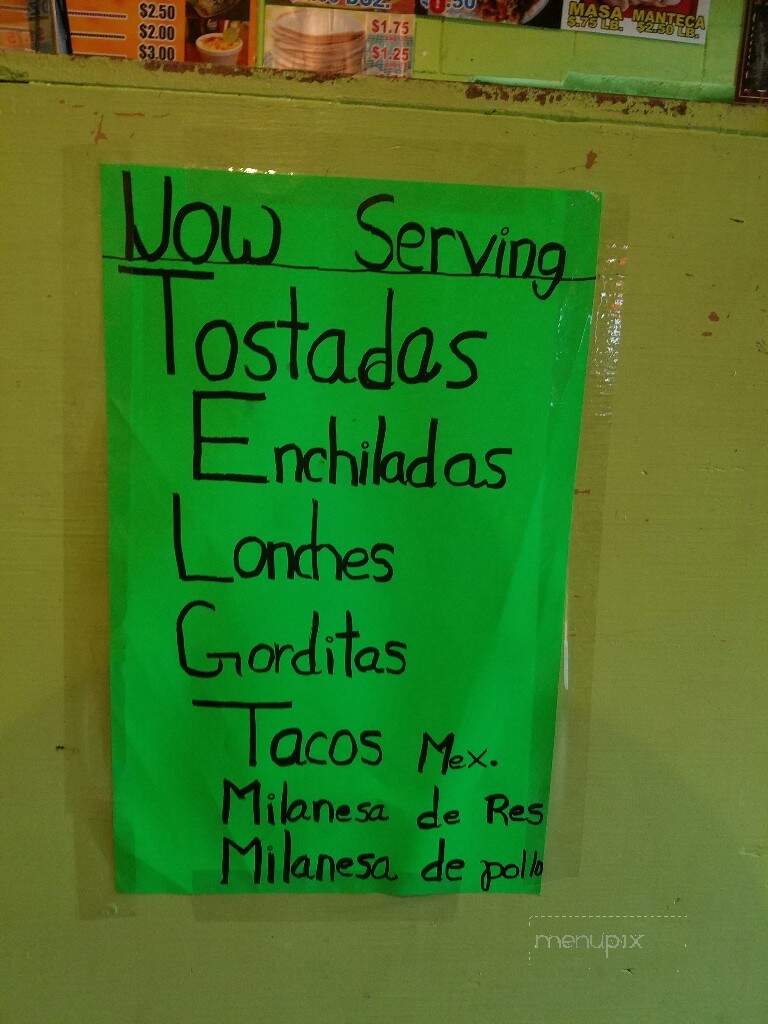 $2.50
$2.00
$3.00
$1.75
$1.25
MASA
$.75 LB.
MANTECA
$2.50 LB.
Now Serving
Tostadas
Enchiladas
Lonches
Gorditas
Tacos Mex.
Milanesa de Res
Milanesa de pollo
menupix